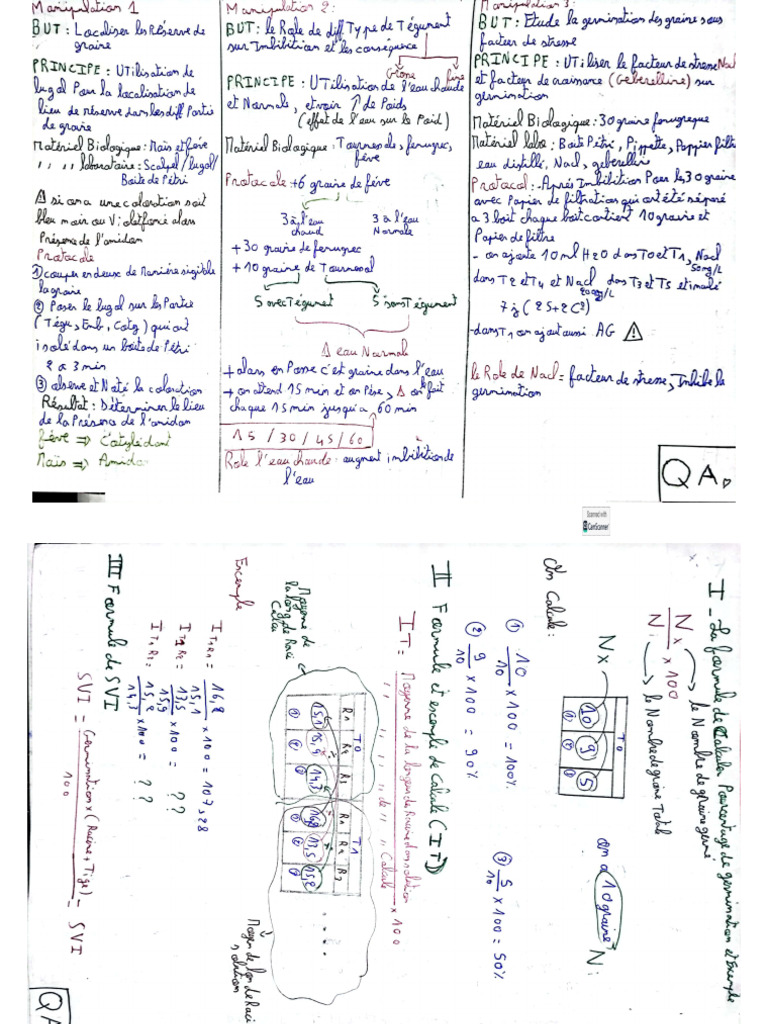 Manipulation 1
BUT : Localiser les Réserve de
graine
PRINCIPE : UTilisation de
lugol Pour la localisation de
lieu de réserve dans les diff Partie
de graine
Matériel Biologique : Maïs et féve
,, ,, laboratoire : Scalpel / lugol /
Boite de Pétri
⚠ si on a une coloration soit
bleu
Présence de l'amidon
Protocole
① couper en deux de Manière
la graine
② Poser le lugol sur les Partie
(Tégu, Emb, Coty) qui ont
isolé dans un boite de Pétri
2 à 3 min
③ observe et Noté la coloration
Résultat : Déterminer le lieu
de la Présence de l'amidon
Féve ⇒ Cotylédont
Maïs ⇒ Amidon
Manipulation 2 :
BUT : le Role de diff Type de Tégument
sur Imbibition et les conséquence
Grosse fine
PRINCIPE : UTilisation de l'eau chaude
et Normale, et voir ↗ de Poids
(effet de l'eau sur le Poid)
Matériel Biologique : Tournesole, fenugrec,
féve
Protocole + 6 graine de féve
3 à l'eau 3 à l'eau
chaud Normale
+ 30 graine de fenugrec
+ 10 graine de Tournesol
5 avec Tégument 5 sans Tégument
Δ eau Normale
+ alors en Posse c'est graine dans l'eau
+ on attend 15 min et on Pèse, Δ on fait
chaque 15 min jusqu'a 60 min
15 / 30 / 45 / 60
Role l'eau chaude : augment imbibition de
l'eau
Manipulation 3 :
BUT : Etude la germination des graine sous
facteur de stresse
PRINCIPE : UTiliser le facteur de stresse Nacl
et facteur de croissance (Geberelline) sur
germination
Matériel Biologique : 30 graine fenugreque
Matériel labo : Boite Pétri, Pippette, Poppier filtre
eau distillé, Nacl, geberellin
Protocol : - Aprés Imbibition Pour les 30 graine
avec Papier de filtration qui ont été séparé
a 3 boit chaque boit contient 10 graine et
Papier de filtre
- on ajoute 10 ml H2O dans T0 et T1, Nacl
50mg/L
dans T2 et T4 et Nacl dans T3 et T5
200mg/L
7 j (25 ± 2 C°)
- dans T1 on ajout aussi AG ⚠
le Role de Nacl = facteur de stresse, Inhibe la
germination
QA
Scanned with
CamScanner
I - La formule de Calculer Pourcentage de germination et Exemple
Nx / Ni x 100
le Nombre de graine germé
le Nombre de graine Totale
On Calcule :
Nx
T0
10 9 5
① ② ③
on a 10 graine
Ni
① 10/10 x 100 = 100%
② 9/10 x 100 = 90%
③ 5/10 x 100 = 50%
II Formule et exemple de Calcule (IT)
IT = Moyenne de la longeur de Racine dans solution / ,, ,, ,, ,, de ,, ,, Calcule x 100
Moyenne de
la long de Raci
T0 T1
R1 R2 R3 R1 R2 R3
15,1 15,9 14,7 16,2 13,5 15,2
Moyen de lon de Raci
solution
Exemple
IT1R1 = 16,2/15,1 x 100 = 107,28
IT1R2 = 13,5/15,9 x 100 = ??
IT1R3 = 15,2/14,7 x 100 = ??
III Formule de SVI
SVI = Germination x (Racine + Tige) / 100 = SVI
QA